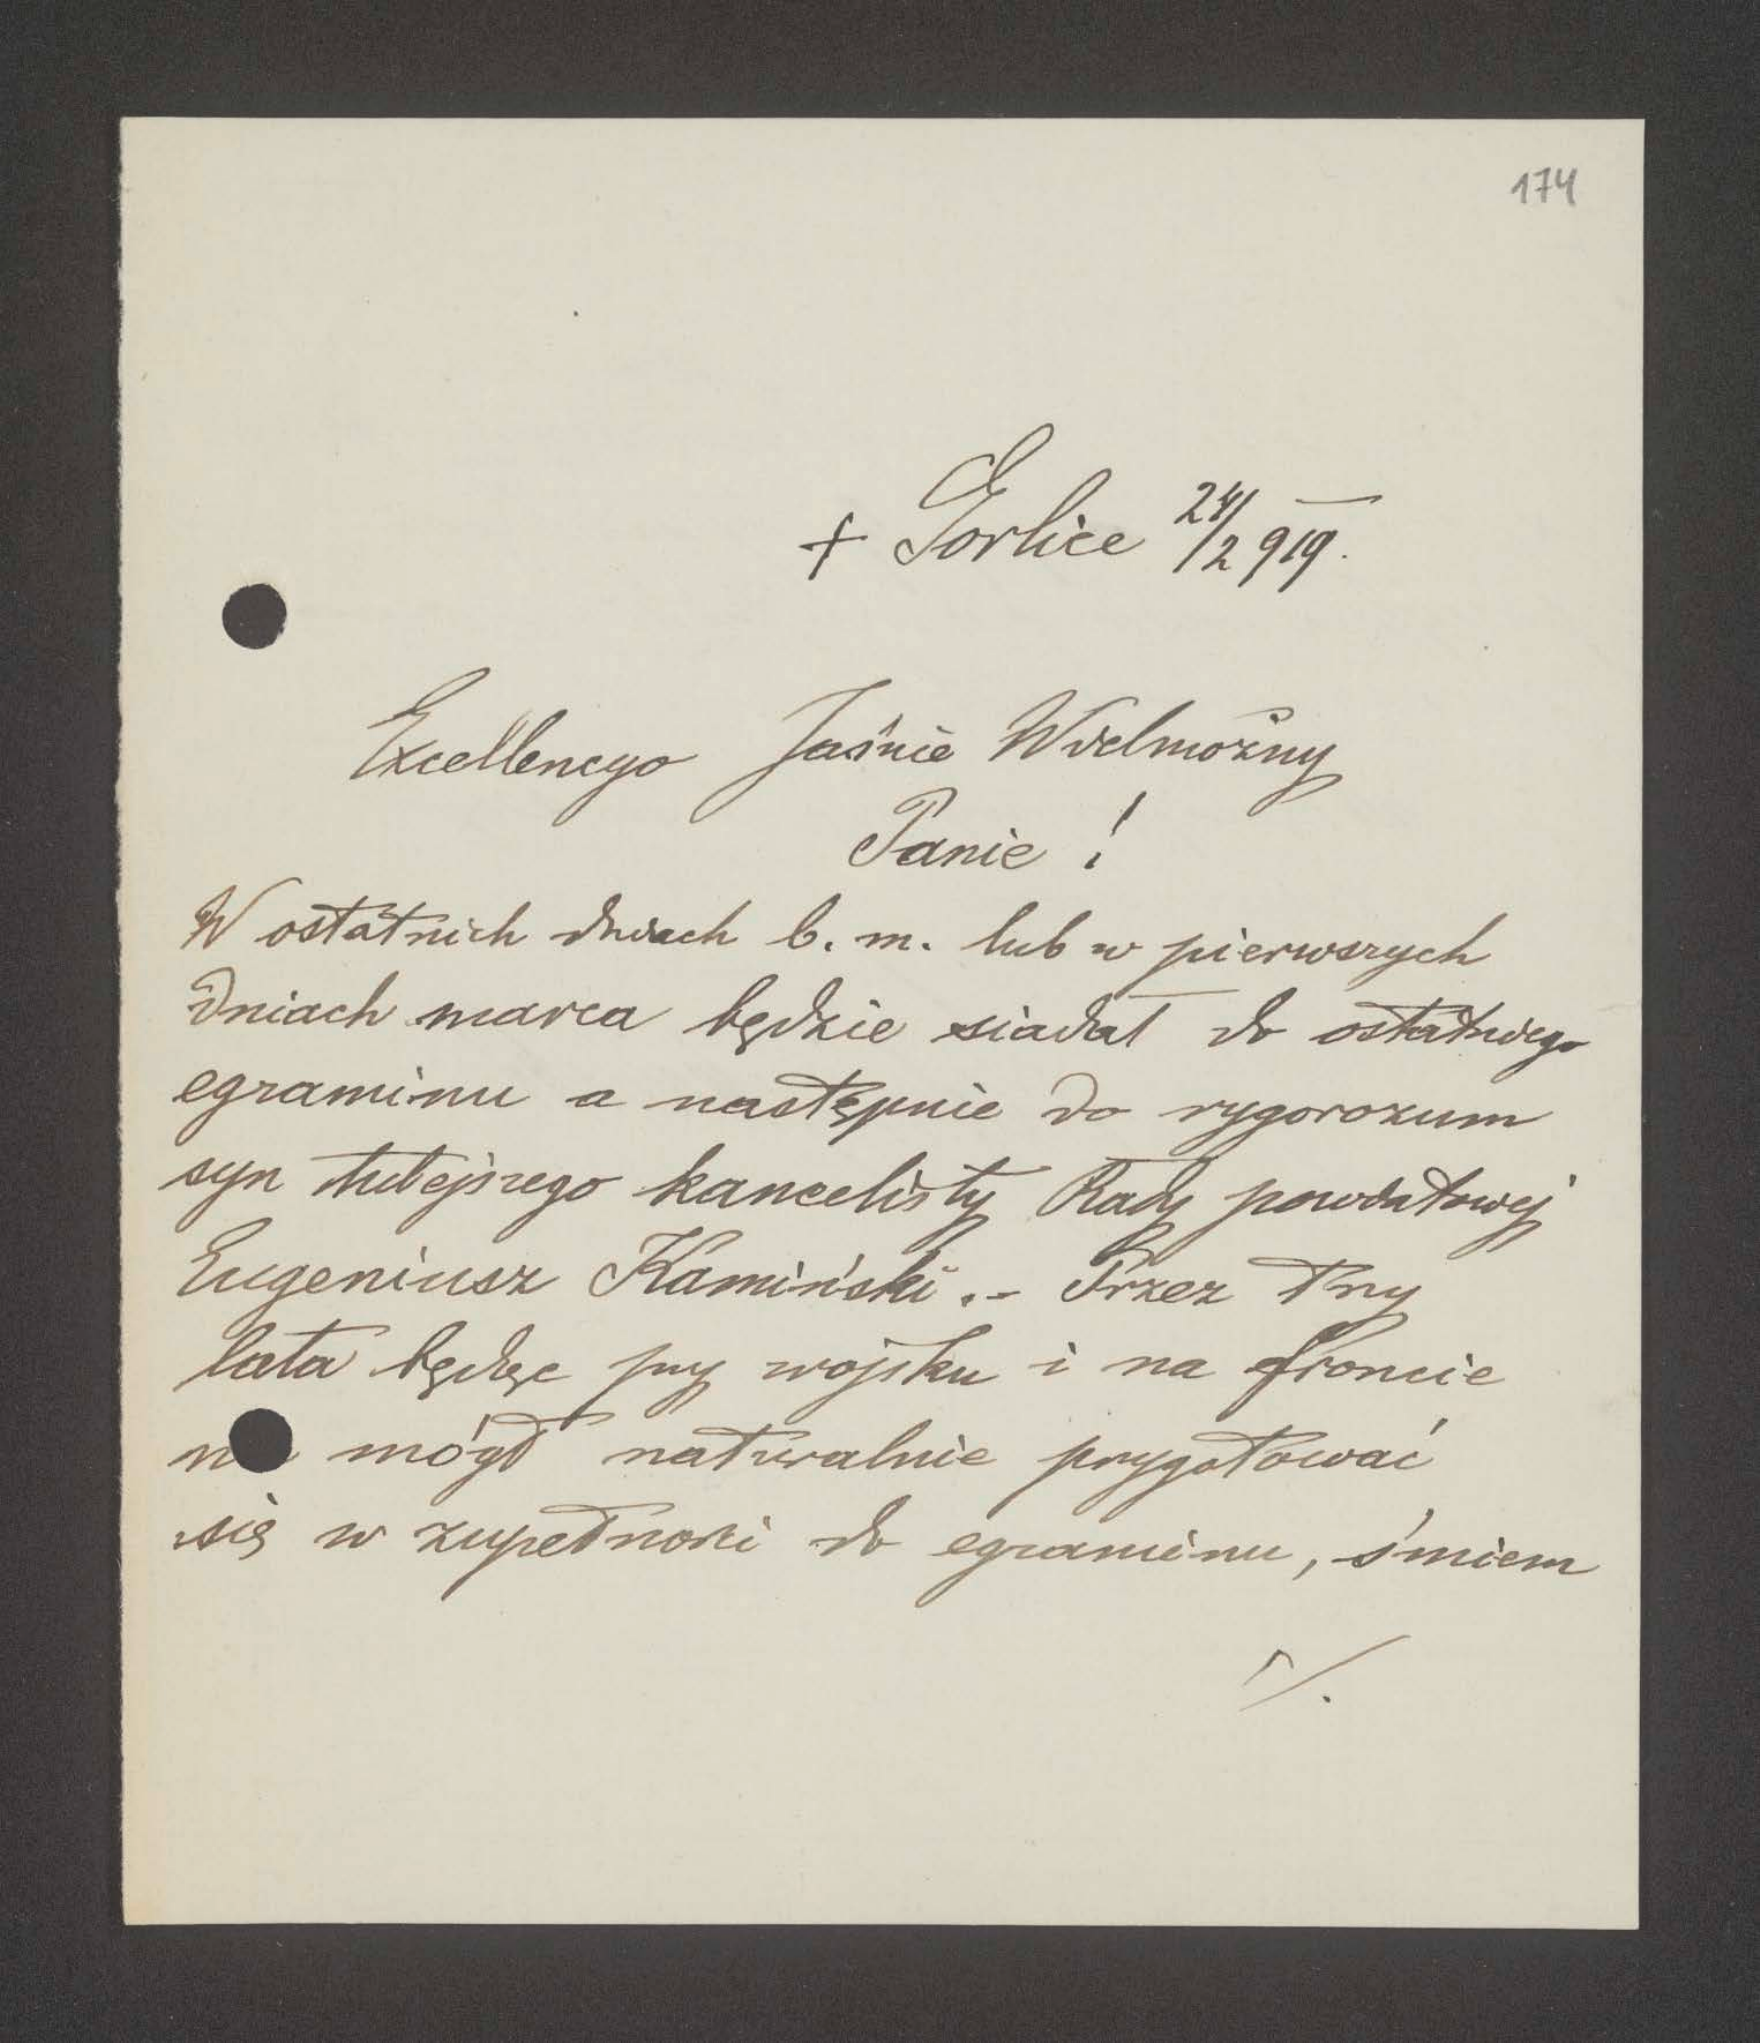 174
+ Gorlice 24/2 919.
Excellencyo Jaśnie Wielmożny
Panie !
W ostatnich dniach b. m. lub w pierwszych
dniach marca będzie siadał do ostatniego
egzaminu a następnie do rygorozum
syn tutejszego kancelisty Rady powiatowej
Eugeniusz Kamiński .- Przez trzy
lata będąc przy wojsku i na froncie
mógł naturalnie przygotować
się w zupełności do egzaminu, śmiem